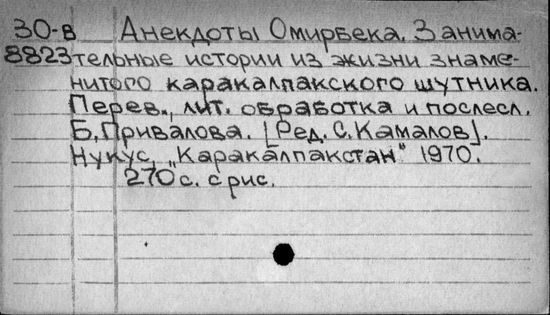 30-в Анекдоты Омирбека. Занима-
8823 тельные истории из жизни знаме-
нитого каракалпакского шутника.
Перев., лит. обработка и послесл.
Б. Привалова. [Ред. С. Камалов].
Нукус, „Каракалпакстан" 1970.
270 с. с рис.